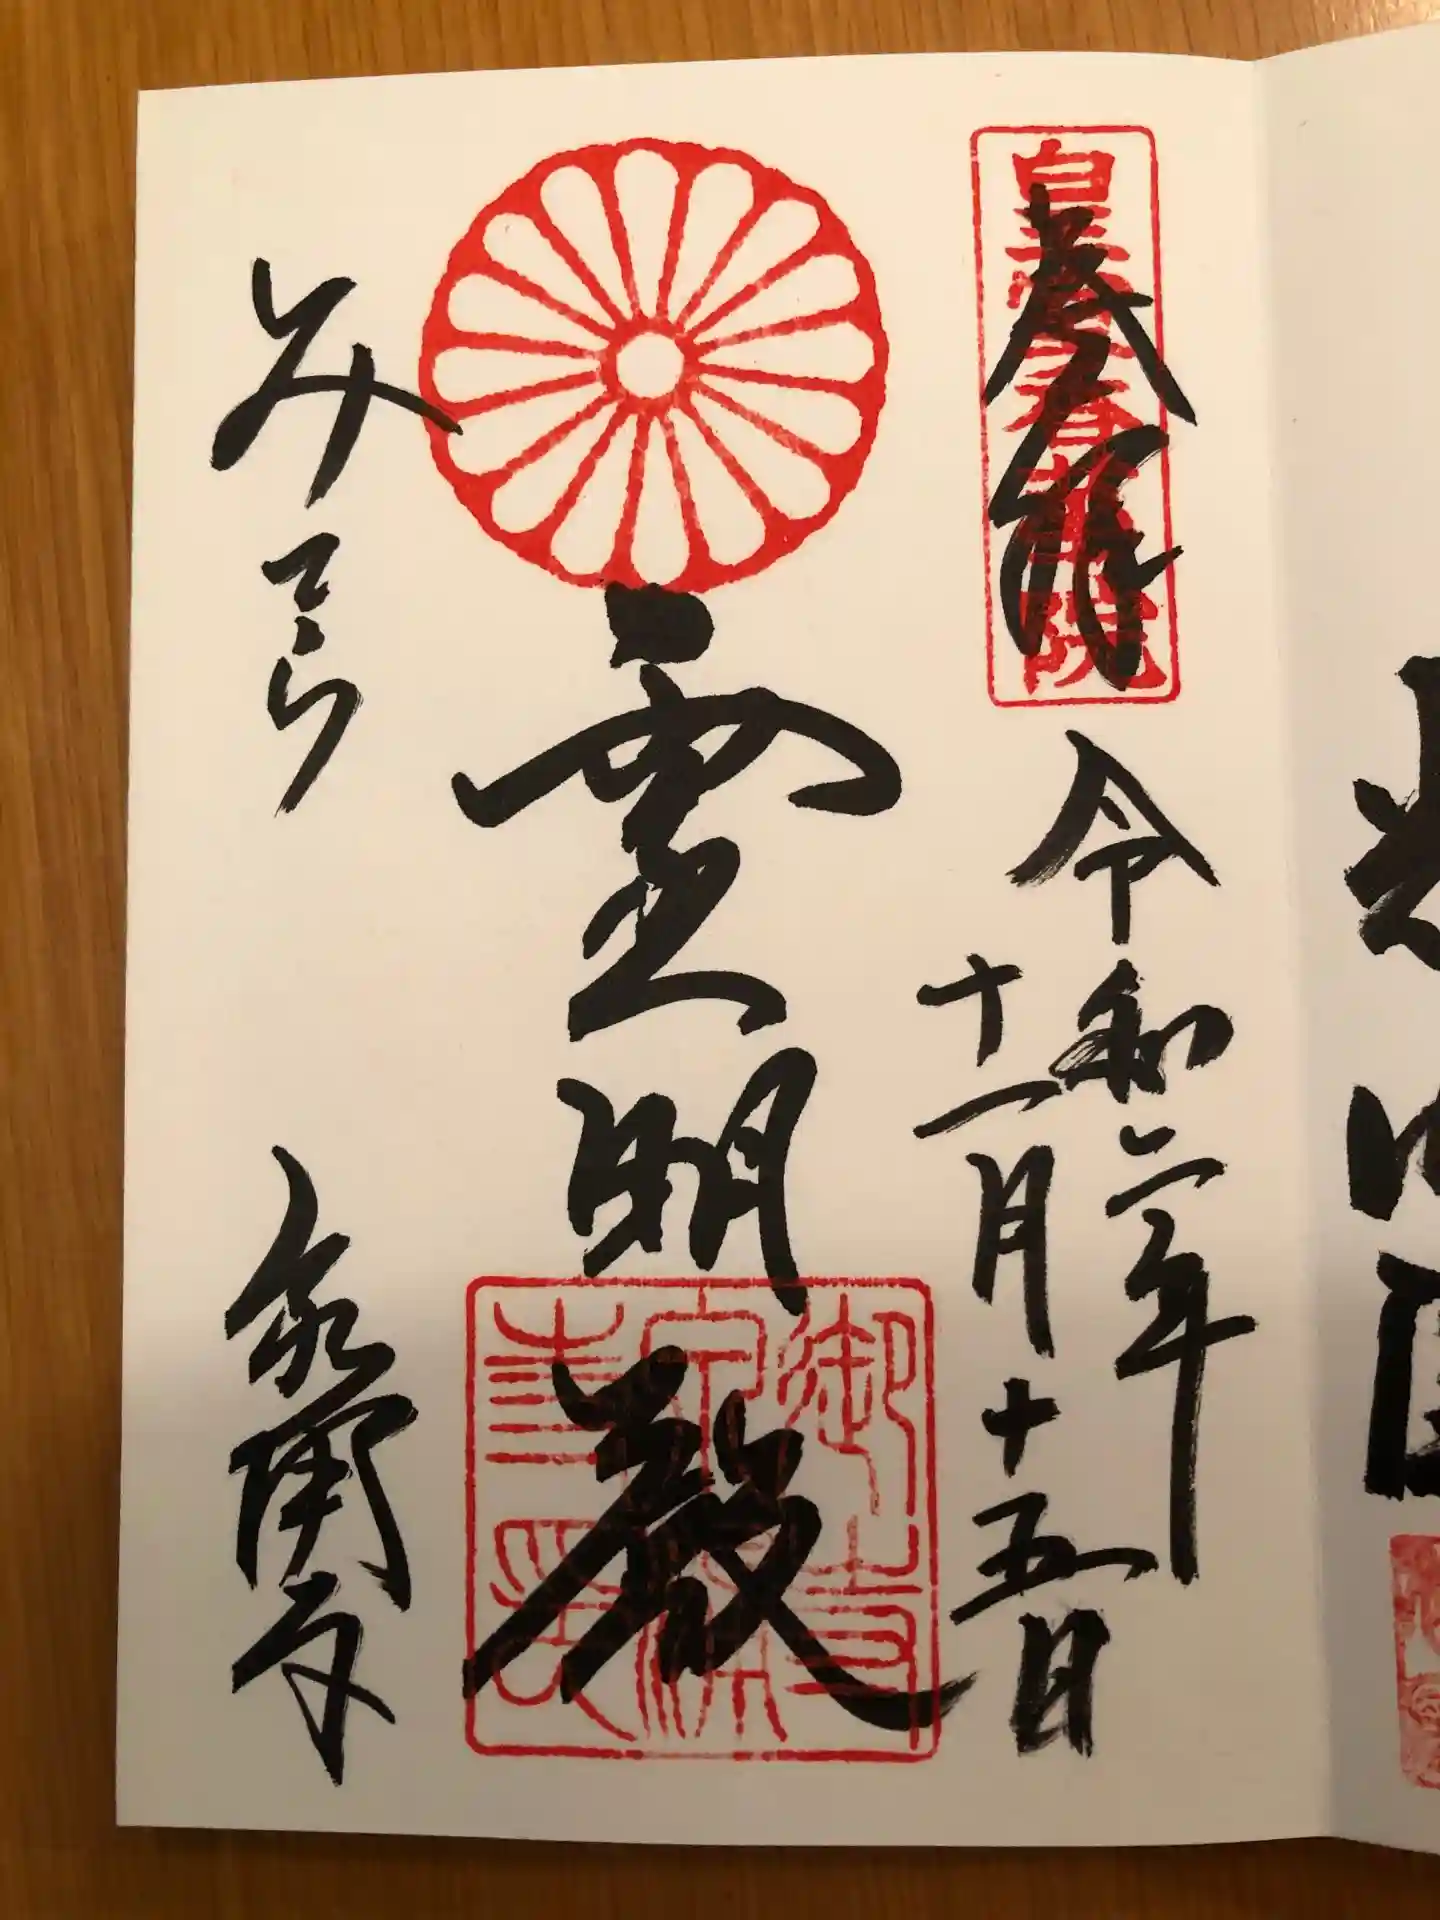 奉拝
皇室香華院
令和二年
十一月十五日
霊明殿
みてら 泉涌寺